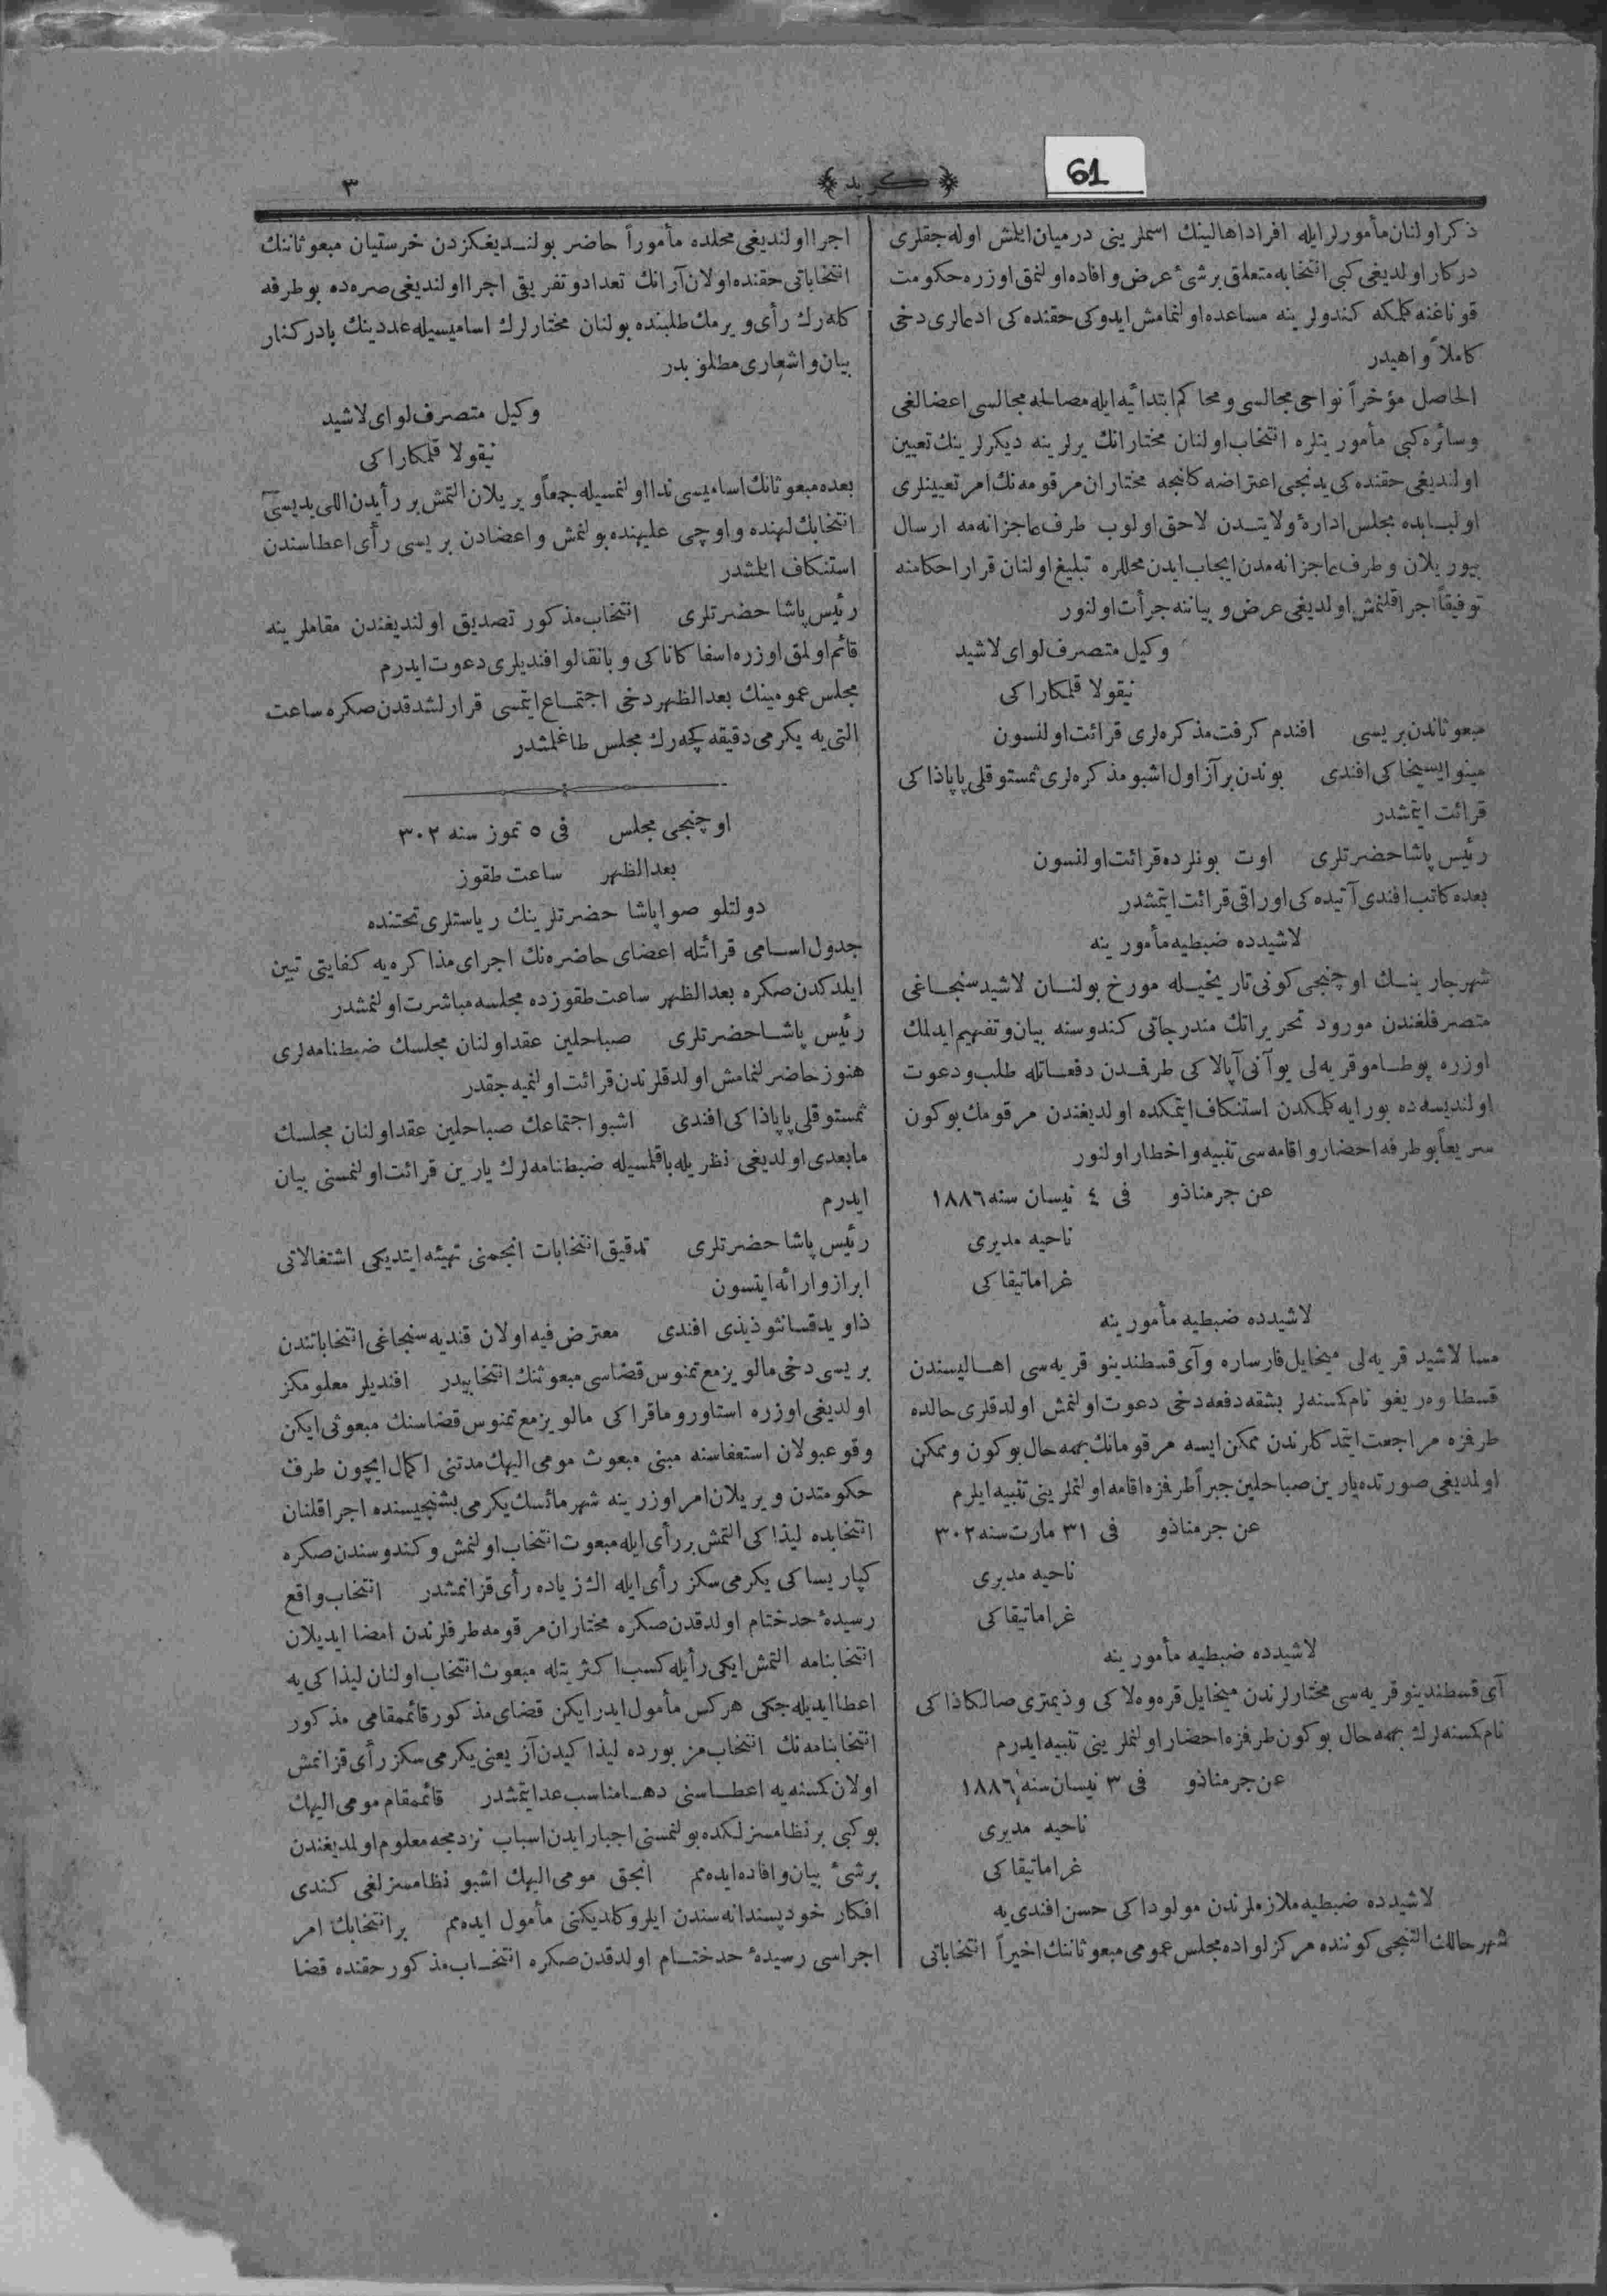 61
﴿ كريد ﴾
٣
ذكر اولنان مأمورلر ايله افراد اهالينك اسملرينى درميان ايلمش اوله جقلرى
دركار اولديغى كبى انتخابه متعلق برشئ عرض و افاده اولنمق اوزره حكومت
قوناغنه كلمكه كندولرينه مساعده اولنمامش ايدوكى حقنده كى ادعالرى دخى
كاملاً واهيدر
الحاصل مؤخراً نواحى مجالسى و محاكم ابتدائيه ايله مصالحه مجالسى اعضالغى
وسائره كبى مأموريتلره انتخاب اولنان مختارانك يرلرينه ديكرلرينك تعيين
اولنديغى حقنده كى يدنجى اعتراضه كلنجه مختاران مرقومه نك امر تعيينلرى
اولبابده مجلس ادارۀ ولايتدن لاحق اولوب طرف عاجزانه مه ارسال
بيوريلان و طرف عاجزانه مدن ايجاب ايدن محللره تبليغ اولنان قرار احكامنه
توفيقاً اجرا قلنمش اولديغى عرض و بياننه جرأت اولنور
وكيل متصرف لواى لاشيد
نيقولا قلمكاراكى
مبعوثاندن بريسى افندم كرفت مذكره لرى قرائت اولنسون
مينوايسيخاكى افندى بوندن بر آز اول اشبو مذكره لرى ثمستوقلى پاپاذاكى
قرائت ايتمشدر
رئيس پاشا حضرتلرى اوت بونلرده قرائت اولنسون
بعده كاتب افندى آتيده كى اوراقى قرائت ايتمشدر
لاشيدده ضبطيه مأمورينه
شهر جارينك اوچنجى كونى تاريخيله مورخ بولنان لاشيد سنجاغى
متصرفلغندن مورود تحريراتك مندرجاتى كندوسنه بيان و تفهيم ايدلمك
اوزره پوطامو قريه لى يوآنى آپالاكى طرفدن دفعاتله طلب و دعوت
اولنديسه ده بورايه كلمكدن استنكاف ايتمكده اولديغندن مرقومك بوكون
سريعاً بو طرفه احضار و اقامه سى تنبيه و اخطار اولنور
عن جرمناذو فى ٤ نيسان سنه ١٨٨٦
ناحيه مديرى
غراماتيقاكى
لاشيدده ضبطيه مأمورينه
مسا لاشيد قريه لى ميخايل فارساره و آى قسطندينو قريه سى اهاليسندن
قسطا وه ريغو نام كسنه لر بشقه دفعه دخى دعوت اولنمش اولدقلرى حالده
طرفزه مراجعت ايتمدكلرندن ممكن ايسه مرقومانك بهمه حال بوكون و ممكن
اولديغى صورتده يارين صباحلين جبراً طرفزه اقامه اولنملرينى تنبيه ايلرم
عن جرمناذو فى ٣١ مارت سنه ٣٠٢
ناحيه مديرى
غراماتيقاكى
لاشيدده ضبطيه مأمورينه
آى قسطندينو قريه سى مختارلرندن ميخايل قره وه لاكى و ذيمترى صالكاذاكى
نام كسنه لرك بهمه حال بوكون طرفزه احضار اولنملرينى تنبيه ايدرم
عن جرمناذو فى ٣ نيسان سنه ١٨٨٦
ناحيه مديرى
غراماتيقاكى
لاشيدده ضبطيه ملازملرندن مولوداكى حسن افندى يه
شهر حالك التنجى كوننده مركز لواده مجلس عمومى مبعوثاننك اخيراً انتخاباتى
اجرا اولنديغى محلده مأموراً حاضر بولنديغكزدن خرستيان مبعوثاننك
انتخاباتى حقنده اولان آرانك تعداد و تفريقى اجرا اولنديغى صره ده بو طرفه
كله رك رأى ويرمك طلبنده بولنان مختارلرك اساميسيله عددينك بادركنار
بيان و اشعارى مطلوبدر
وكيل متصرف لواى لاشيد
نيقولا قلمكاراكى
بعده مبعوثانك اساميسى ندا اولنمسيله جمعاً ويريلان التمش بر رأيدن اللى يديسى
انتخابك لهنده و اوچى عليهنده بولنمش و اعضادن بريسى رأى اعطاسندن
استنكاف ايلمشدر
رئيس پاشا حضرتلرى انتخاب مذكور تصديق اولنديغندن مقاملرينه
قائم اولمق اوزره اسفاكاناكى و بانقالو افنديلرى دعوت ايدرم
مجلس عمومينك بعدالظهر دخى اجتماع ايتمسى قرارلشدقدن صكره ساعت
التى يه يكرمى دقيقه كچه رك مجلس طاغلمشدر
اوچنجى مجلس فى ٥ تموز سنه ٣٠٢
بعدالظهر ساعت طقوز
دولتلو صوا پاشا حضرتلرينك رياستلرى تحتنده
جدول اسامى قرائتله اعضاى حاضره نك اجراى مذاكره يه كفايتى تبين
ايلدكدن صكره بعدالظهر ساعت طقوزده مجلسه مباشرت اولنمشدر
رئيس پاشا حضرتلرى صباحلين عقد اولنان مجلسك ضبطنامه لرى
هنوز حاضرلنمامش اولدقلرندن قرائت اولنميه جقدر
ثمستوقلى پاپاذاكى افندى اشبو اجتماعك صباحلين عقد اولنان مجلسك
مابعدى اولديغى نظريله باقلمسيله ضبطنامه لرك يارين قرائت اولنمسنى بيان
ايدرم
رئيس پاشا حضرتلرى تدقيق انتخابات انجمنى تهيئه ايتديكى اشتغالاتى
ابراز و ارائه ايتسون
ذاويدقسانثوذيذى افندى معترض فيه اولان قنديه سنجاغى انتخاباتندن
بريسى دخى مالويزمع تمنوس قضاسى مبعوثنك انتخابيدر افنديلر معلومكز
اولديغى اوزره استاورو ماقراكى مالويزمع تمنوس قضاسنك مبعوثى ايكن
وقوعبولان استعفاسنه مبنى مبعوث مومى اليهك مدتنى اكمال ايچون طرف
حكومتدن ويريلان امر اوزرينه شهر مائسك يكرمى بشنجيسنده اجرا قلنان
انتخابده ليذاكى التمش بر رأى ايله مبعوث انتخاب اولنمش و كندوسندن صكره
كپاريساكى يكرمى سكز رأى ايله اڭ زياده رأى قزانمشدر انتخاب واقع
رسيدۀ حد ختام اولدقدن صكره مختاران مرقومه طرفلرندن امضا ايديلان
انتخابنامه التمش ايكى رأيله كسب اكثريتله مبعوث انتخاب اولنان ليذاكى يه
اعطا ايديله جكى هركس مأمول ايدر ايكن قضاى مذكور قائممقامى مذكور
انتخابنامه نك انتخاب مزبورده ليذاكيدن آز يعنى يكرمى سكز رأى قزانمش
اولان كسنه يه اعطاسنى دها مناسب عد ايتمشدر قائممقام مومى اليهك
بوكبى بر نظامسزلكده بولنمسنى اجبار ايدن اسباب نزدمجه معلوم اولمديغندن
برشئ بيان و افاده ايده مم انجق مومى اليهك اشبو نظامسزلغى كندى
افكار خودپسندانه سندن ايلرو كلديكنى مأمول ايده مم بر انتخابك امر
اجراسى رسيدۀ حد ختام اولدقدن صكره انتخاب مذكور حقنده قضا